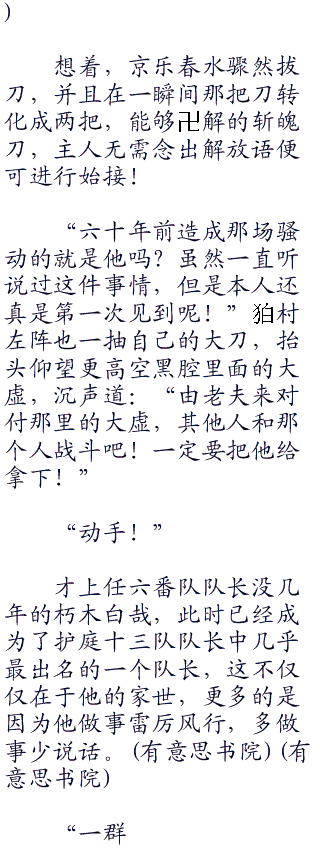 )
想着，京乐春水骤然拔
刀，并且在一瞬间那把刀转
化成两把，能够卍解的斩魄
刀，主人无需念出解放语便
可进行始接！
“六十年前造成那场骚
动的就是他吗？虽然一直听
说过这件事情，但是本人还
真是第一次见到呢！”狛村
左阵也一抽自己的大刀，抬
头仰望更高空黑腔里面的大
虚，沉声道：“由老夫来对
付那里的大虚，其他人和那
个人战斗吧！一定要把他给
拿下！”
“动手！”
才上任六番队队长没几
年的朽木白哉，此时已经成
为了护庭十三队队长中几乎
最出名的一个队长，这不仅
仅在于他的家世，更多的是
因为他做事雷厉风行，多做
事少说话。(有意思书院)(有
意思书院)
“一群